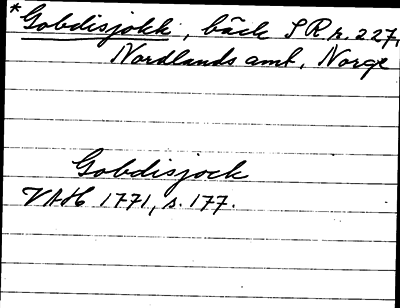 *Gobdisjokk, bäck SR r. 227,
Nordlands amt, Norge
Gobdisjock
VAH 1771, s. 177.